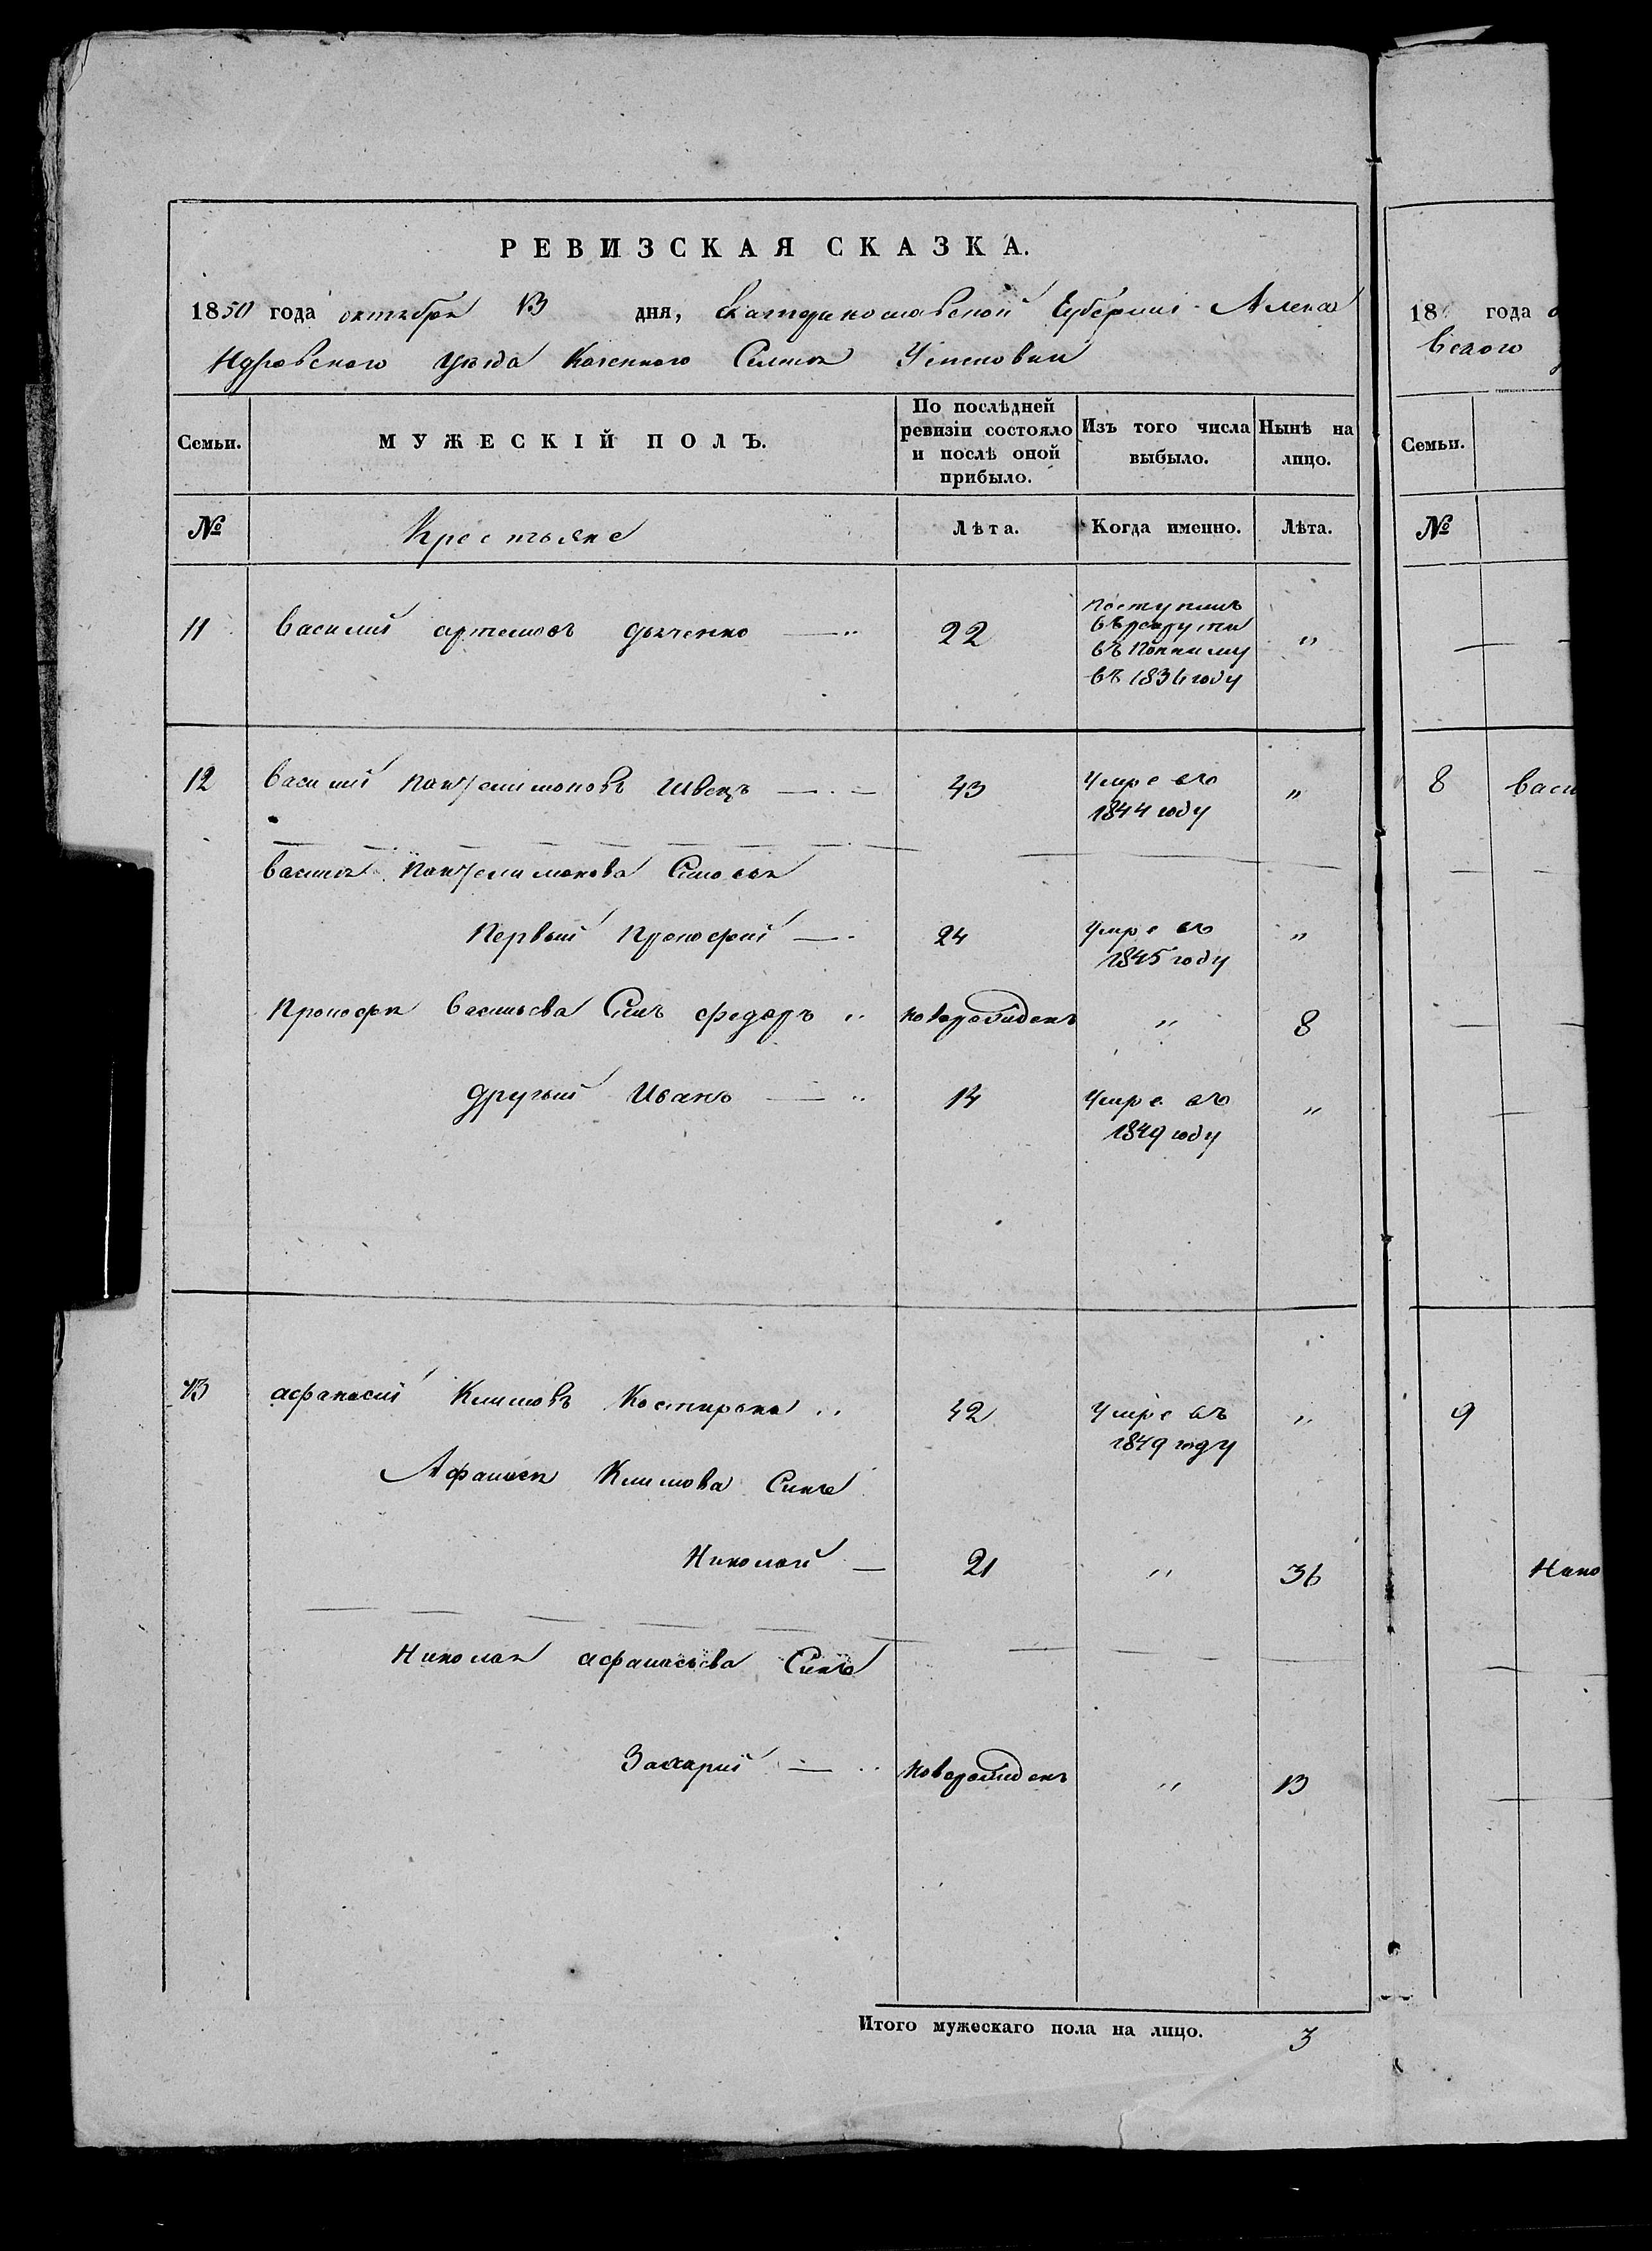 РЕВИЗСКАЯ СКАЗКА.
1850 года октября 13 дня, Екатеринославской Губернии Алекса
ндровского уезда Казенного Селения
Семьи.
МУЖЕСКІЙ ПОЛЪ.
По послѣдней ревизіи состояло и послѣ оной прибыло.
Изъ того числа выбыло.
Нынѣ на лицо.
№
Крестьяне
Лѣта.
Когда именно.
Лѣта.
11 Василий Артемовъ Дяченко — " 22 поступилъ "
въ рекруты
въ
въ 1836 году
12 Василий Пантелимоновъ Швецъ — . — 43 умре въ "
1844 году
Василя Пантелимонова Сыновя
Первый Прокофий — . 24 умре въ "
1845 году
Прокофя Васильева Сынъ Федоръ " новорожденъ " 8
Другий Иванъ — " 14 умре въ "
1849 году
13 Афанасий Климовъ Костирка " 42 умре въ "
1849 году
Афанася Климова Сынъ
Николай — 21 " 36
Николая Афанасьева Сынъ
Захарий — " новорожденъ " 13
Итого мужескаго пола на лицо. 3
18 года
Семьи.
№
8 Васи
9
Нико